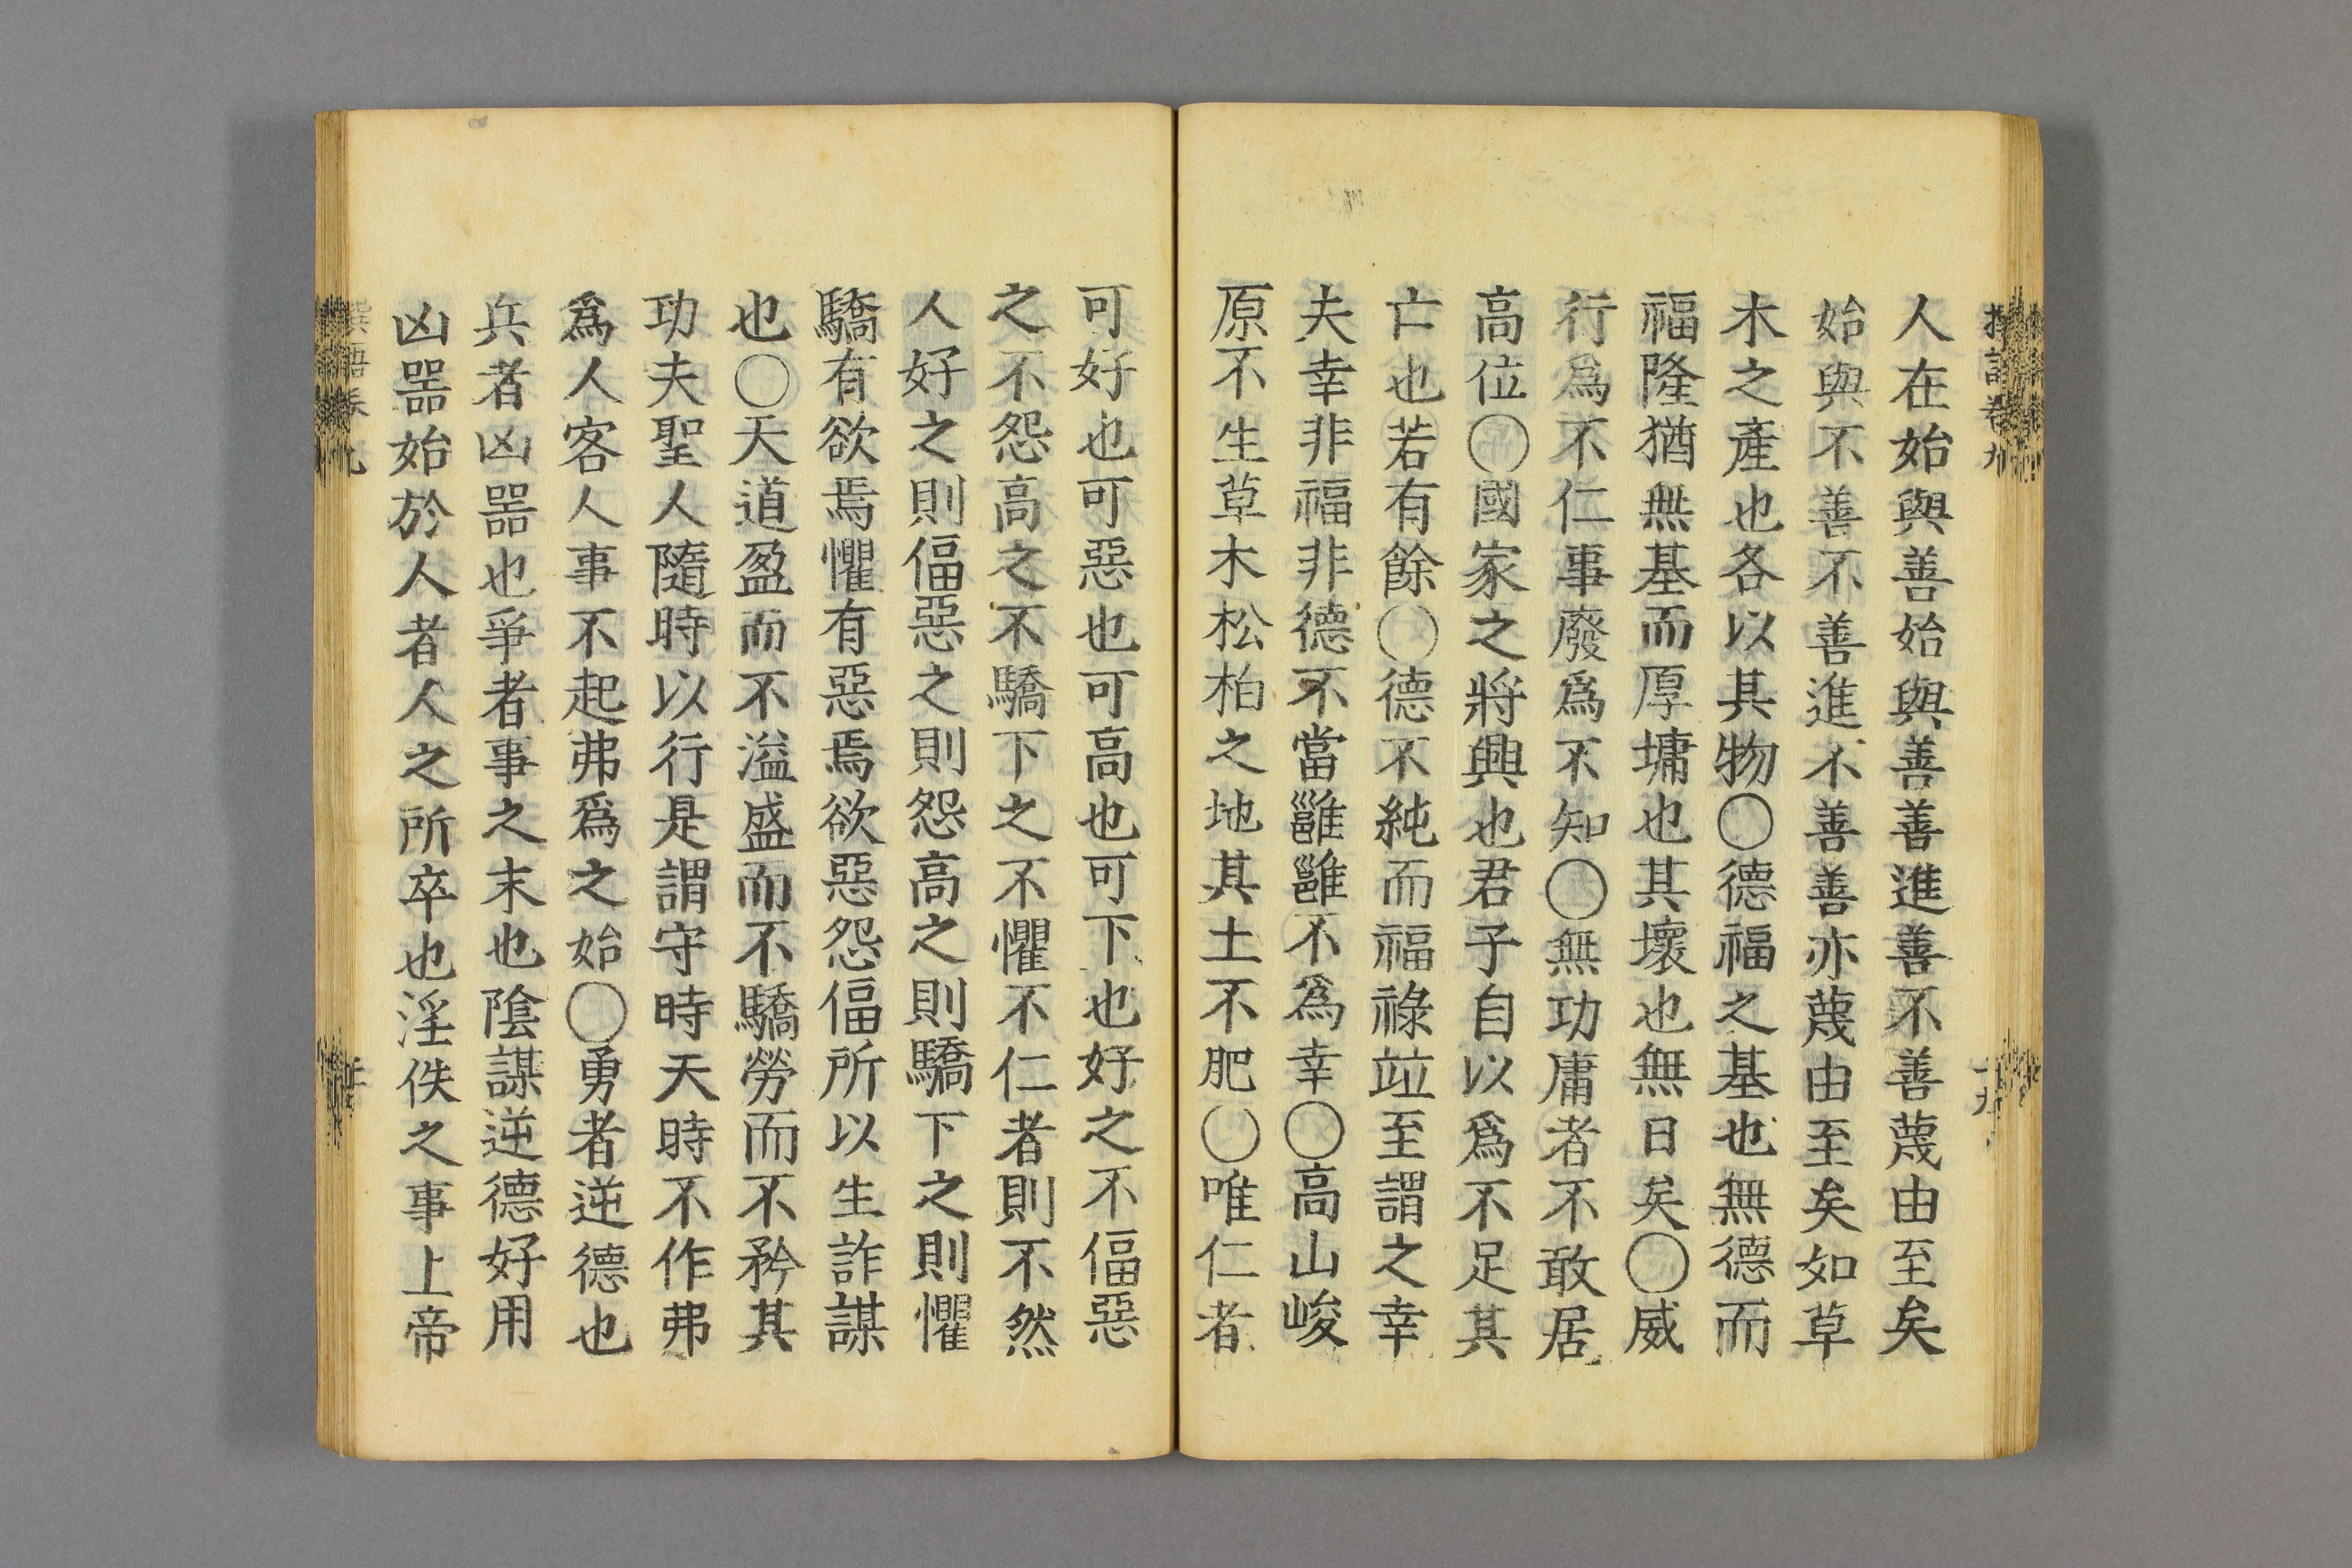 人在始與善始與善善進善不善蔑由至矣
始與不善不善進不善善亦蔑由至矣如草
木之產也各以其物〇德福之基也無德而
福隆猶無基而厚墉也其壞也無日矣〇威
行爲不仁事廢爲不知〇無功庸者不敢居
高位〇國家之將興也君子自以爲不足其
亡也若有餘〇德不純而福祿竝至謂之幸
夫幸非福非德不當雝雝不爲幸〇高山峻
原不生草木松柏之地其土不肥〇唯仁者
可好也可惡也可高也可下也好之不偪惡
之不怨高之不驕下之不懼不仁者則不然
人好之則偪惡之則怨高之則驕下之則懼
驕有欲焉懼有惡焉欲惡怨偪所以生詐謀
也〇天道盈而不溢盛而不驕勞而不矜其
功夫聖人隨時以行是謂守時天時不作弗
爲人客人事不起弗爲之始〇勇者逆德也
兵者凶器也爭者事之末也陰謀逆德好用
凶器始於人者人之所卒也淫佚之事上帝